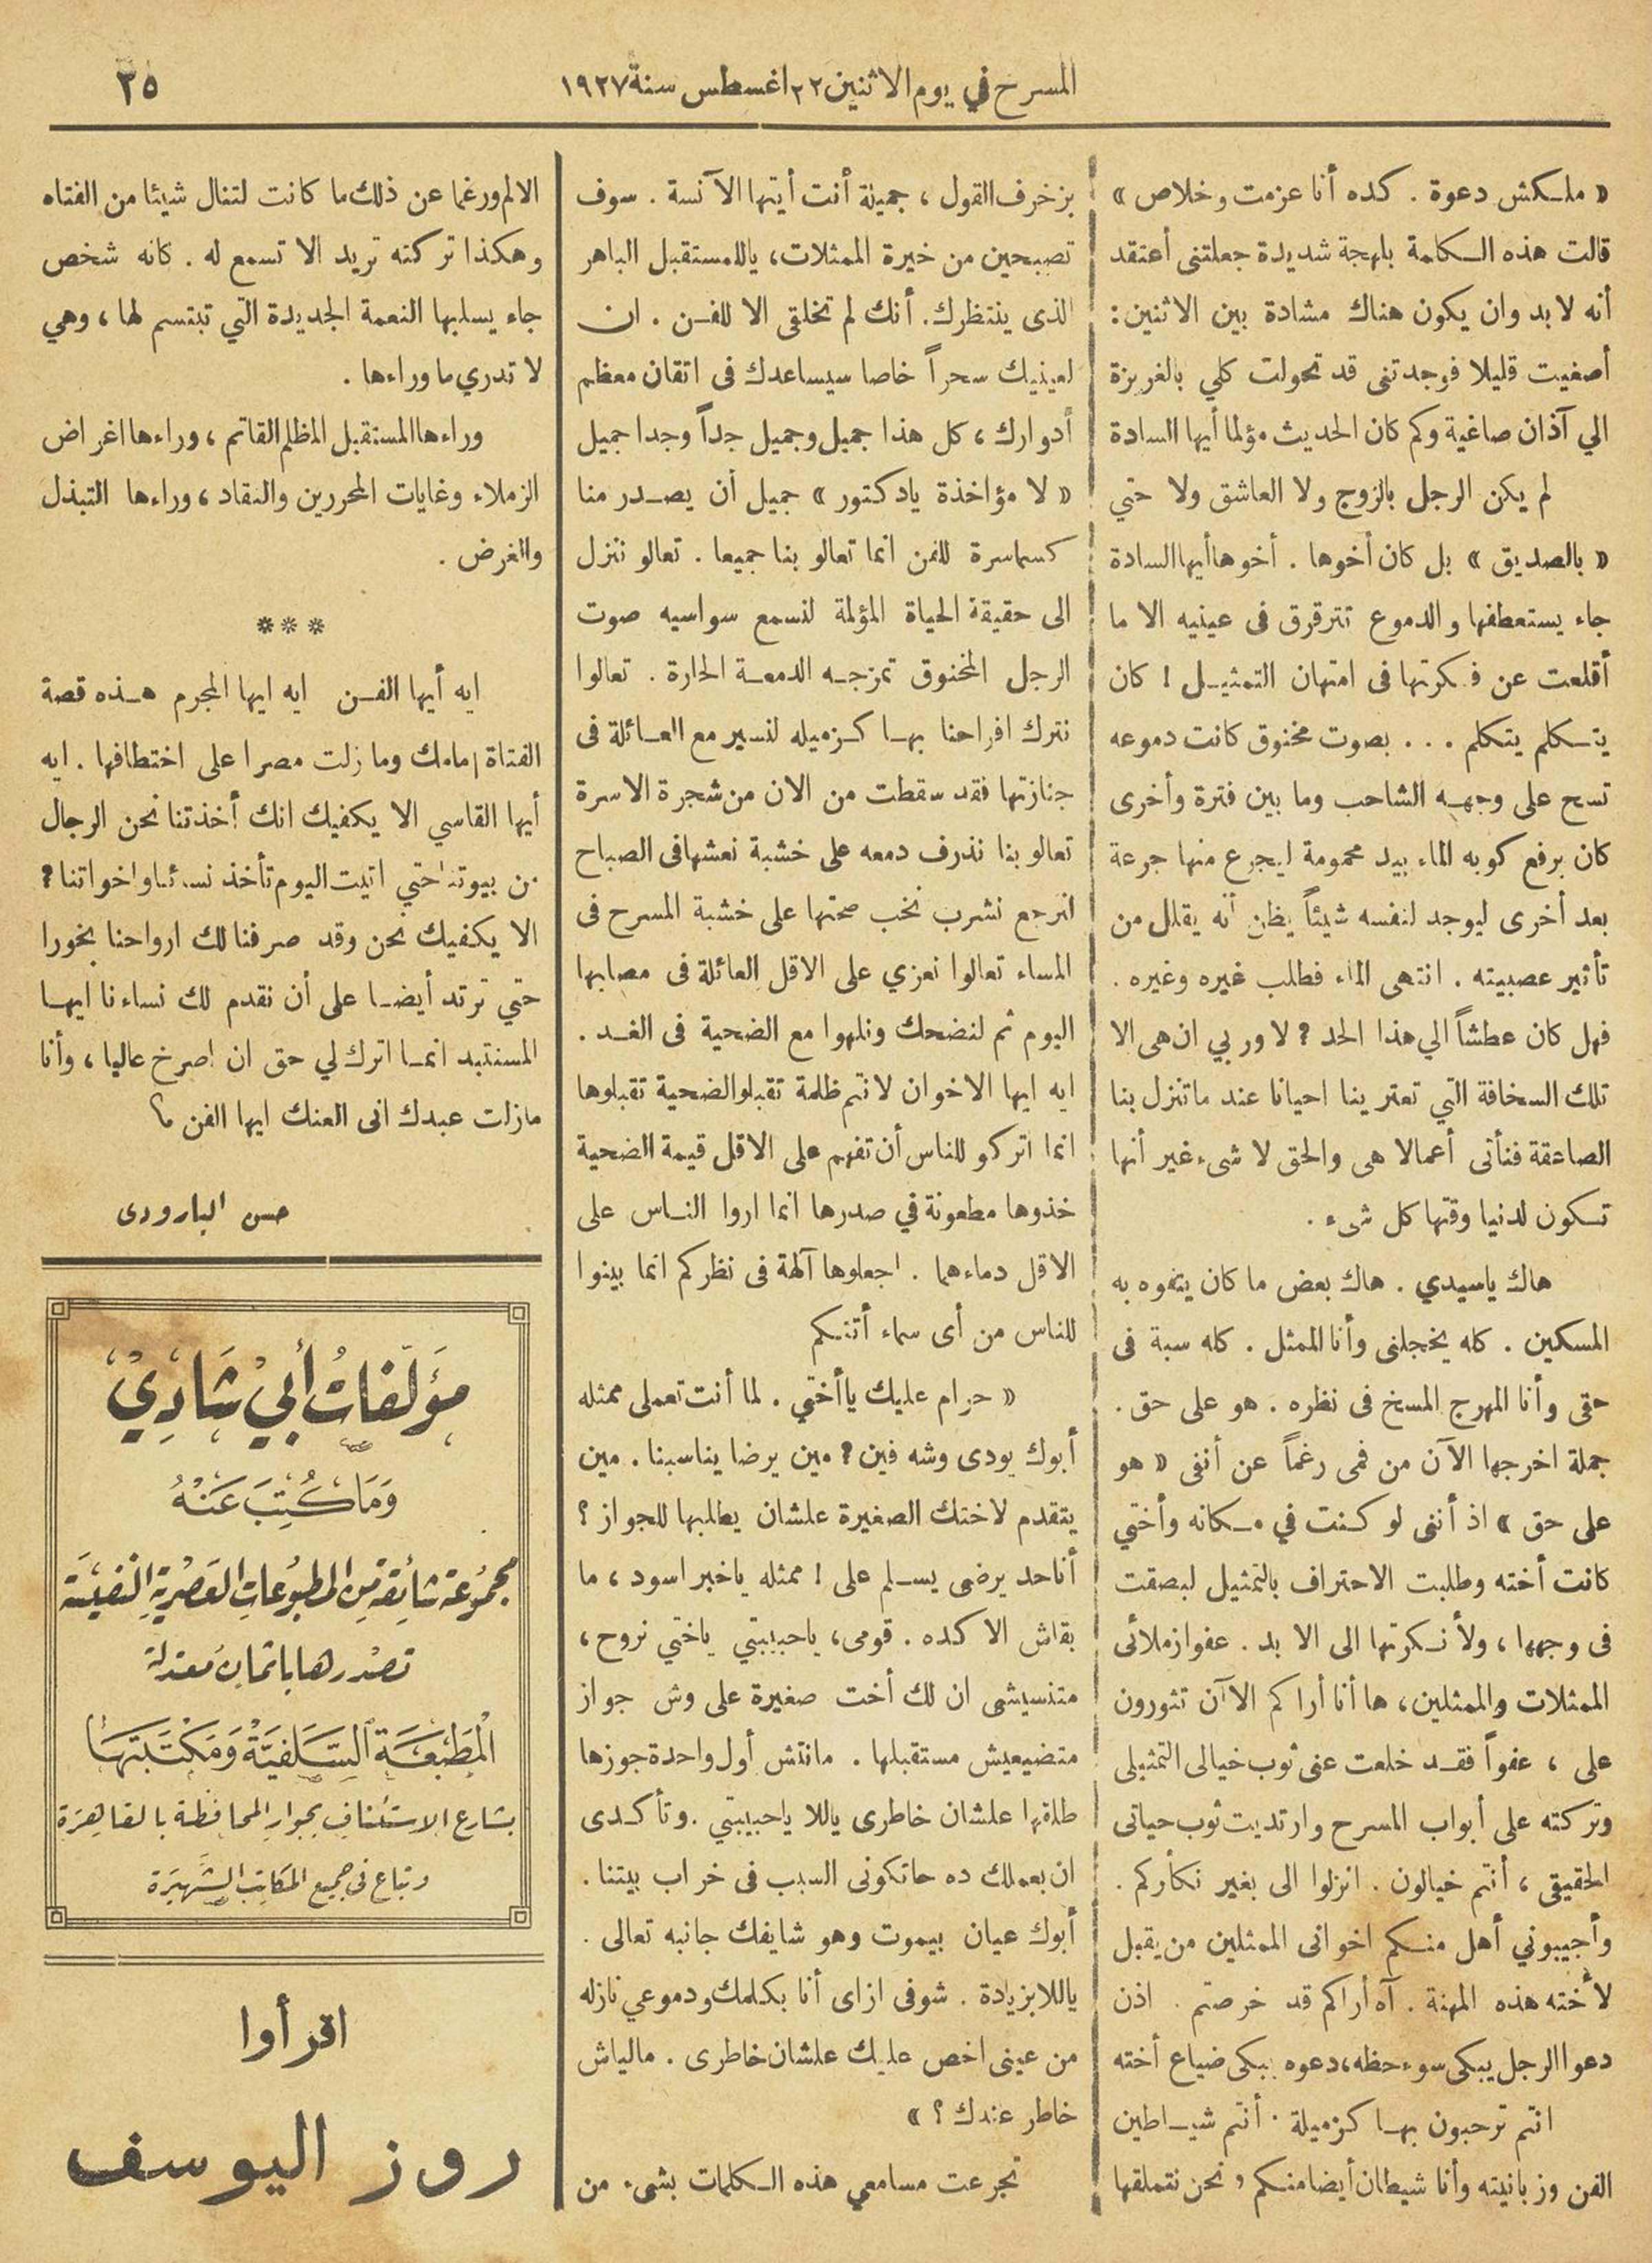 المسرح في يوم الاثنين ٢٢ اغسطس سنة ١٩٢٧
٣٥
« ملكش دعوة . كده أنا عزمت وخلاص »
قالت هذه الكلمة بلهجة شديدة جعلتنى أعتقد
أنه لا بد وان يكون هناك مشادة بين الاثنين :
أصغيت قليلا فوجدتنى قد تحولت كلي بالغريزة
الي آذان صاغية وكم كان الحديث مؤلما أيها السادة
لم يكن الرجل بالزوج ولا العاشق ولا حتي
« بالصديق » بل كان أخوها . أخوها أيها السادة
جاء يستعطفها والدموع تترقرق فى عينيه الا ما
أقلعت عن فكرتها فى امتهان التمثيل ! كان
يتكلم يتكلم . . . بصوت مخنوق كانت دموعه
تسح على وجهه الشاحب وما بين فترة وأخرى
كان يرفع كوبه الماء بيد محمومة ليجرع منها جرعة
بعد أخرى ليوجد لنفسه شيئاً يظن أنه يقلل من
تأثير عصبيته . انتهى الماء فطلب غيره وغيره .
فهل كان عطشاً الي هذا الحد ؟ لا وربي ان هى الا
تلك السخافة التي تعترينا احيانا عند ما تنزل بنا
الصاعقة فنأتى أعمالا هى والحق لا شىء غير أنها
تكون لدنيا وقتها كل شىء .
هاك ياسيدي . هاك بعض ما كان يتفوه به
المسكين . كله يخجلنى وأنا الممثل . كله سبة فى
حقى وأنا المهرج المسخ فى نظره . هو على حق .
جملة اخرجها الآن من فمى رغماً عن أنفى « هو
على حق » اذ أننى لو كنت في مكانه وأختي
كانت أخته وطلبت الاحتراف بالتمثيل لبصقت
فى وجهها ، ولأنكرتها الى الابد . عفوا زملائى
الممثلات والممثلين ، ها أنا أراكم الاآن تثورون
على ، عفواً فقد خلعت عنى ثوب خيالى التمثيلى
وتركته على أبواب المسرح وارتديت ثوب حياتى
الحقيقى ، أنتم خيالون . انزلوا الى بغير نكأركم .
وأجيبوني أهل منكم اخوانى الممثلين من يقبل
لأخته هذه المهنة . آه أراكم قد خرصتم . اذن
دعوا الرجل يبكى سوء حظه، دعوه يبكى ضياع أخته
انتم ترحبون بها كزميلة . أنتم شياطين
الفن وزبانيته وأنا شيطان أيضا منكم ونحن نتملقها
بزخرف القول ، جميلة أنت أيتها الآنسة . سوف
تصبحين من خيرة الممثلات ، ياللمستقبل الباهر
الذى ينتظرك . أنك لم تخلقى الا للفن . ان
لعينيك سحراً خاصا سيساعدك فى اتقان معظم
أدوارك ، كل هذا جميل وجميل جداً وجدا جميل
« لا مؤاخذة يادكتور » جميل أن يصدر منا
كسماسرة للفن انما تعالو بنا جميعا . تعالو ننزل
الى حقيقة الحياة المؤلمة لنسمع سواسيه صوت
الرجل المخنوق تمزجه الدمعة الحارة . تعالوا
نترك افراحنا بها كزميله لنسير مع العائلة فى
جنازتها فقد سقطت من الان من شجرة الاسرة
تعالو بنا نذرف دمعه على خشبة نعشها فى الصباح
لنرجع نشرب نخب صحتها على خشبة المسرح فى
المساء تعالوا نعزي على الاقل العائلة فى مصابها
اليوم ثم لنضحك ونلهوا مع الضحية فى الغد .
ايه ايها الاخوان لا تهم ظلمة تقبلو الضحية تقبلوها
انما اتركو للناس أن تفهم على الاقل قيمة الضحية
خذوها مطعونة في صدرها انما اروا الناس على
الاقل دماءهما . اجعلوها آلهة فى نظركم انما بينوا
للناس من أى سماء أتتكم
« حرام عليك يا أختي . لما أنت تعملى ممثله
أبوك يودى وشه فين ؟ مين يرضا يناسبنا . مين
يتقدم لاختك الصغيرة علشان يطلبها للجواز ؟
أناحد يرضى يسلم على ! ممثله ياخبر اسود ، ما
بقاش الا كده . قومى ، ياحبيبتي ياختي نروح ،
متنسيشى ان لك أخت صغيرة على وش جواز
متضيعيش مستقبلها . مانتش أول واحدة جوزها
طلقها علشان خاطرى ياللا ياحبيبتي . وتأكدى
ان بعملك ده حاتكونى السبب فى خراب بيتنا .
أبوك عيان بيموت وهو شايفك جانبه تعالى .
ياللا بزيادة . شوفى ازاى أنا بكلمك ودموعي نازله
من عينى اخص عليك علشان خاطرى . ماليش
خاطر عندك ؟ »
تجرعت مسامعي هذه الكلمات بشىء من
الالم ورغما عن ذلك ما كانت لتنال شيئا من الفتاه
وهكذا تركته تريد الا تسمع له . كانه شخص
جاء يسلبها النعمة الجديدة التي تبتسم لها ، وهي
لا تدري ما وراءها .
وراءها المستقبل المظلم القاتم ، وراءها اغراض
الزملاء وغايات المحررين والنقاد ، وراءها التبذل
والغرض .
***
ايه أيها الفن ايه ايها المجرم هذه قصة
الفتاة امامك وما زلت مصرا على اختطافها . ايه
أيها القاسي الا يكفيك انك أخذتنا نحن الرجال
من بيوتنا حتي اتيت اليوم تأخذ نسائنا واخواتنا ؟
الا يكفيك نحن وقد صرفنا لك ارواحنا بخورا
حتي ترتد أيضا على أن نقدم لك نساءنا ايها
المستبد انما اترك لي حق ان اصرخ عاليا ، وأنا
مازلت عبدك انى العنك ايها الفن ؟
حسن البارودى
مؤلفات أبي شادي
وما كتب عنه
مجموعة شائقة من المطبوعات العصرية النفيسة
تصدرها باثمان معتدلة
المطبعة السلفية ومكتبتها
بشارع الاستئناف بجوار المحافظة بالقاهرة
وتباع في جميع المكاتب الشهيرة
اقرأوا
روز اليوسف